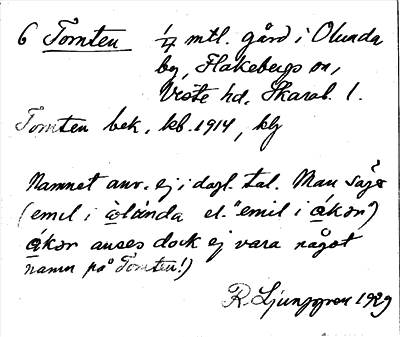 6 Tomten 1/4 mtl. gård i Olunda
by, Flakebergs sn,
Viste hd, Skarab. l.
Tomten bek. kb. 1914,
Namnet anv. ej i dagl. tal. Man säge
(emil i òlúnda el. "emil i ákər")
ákər anses dock ej vara något
namn på Tomten!)
R. Ljunggren 1929